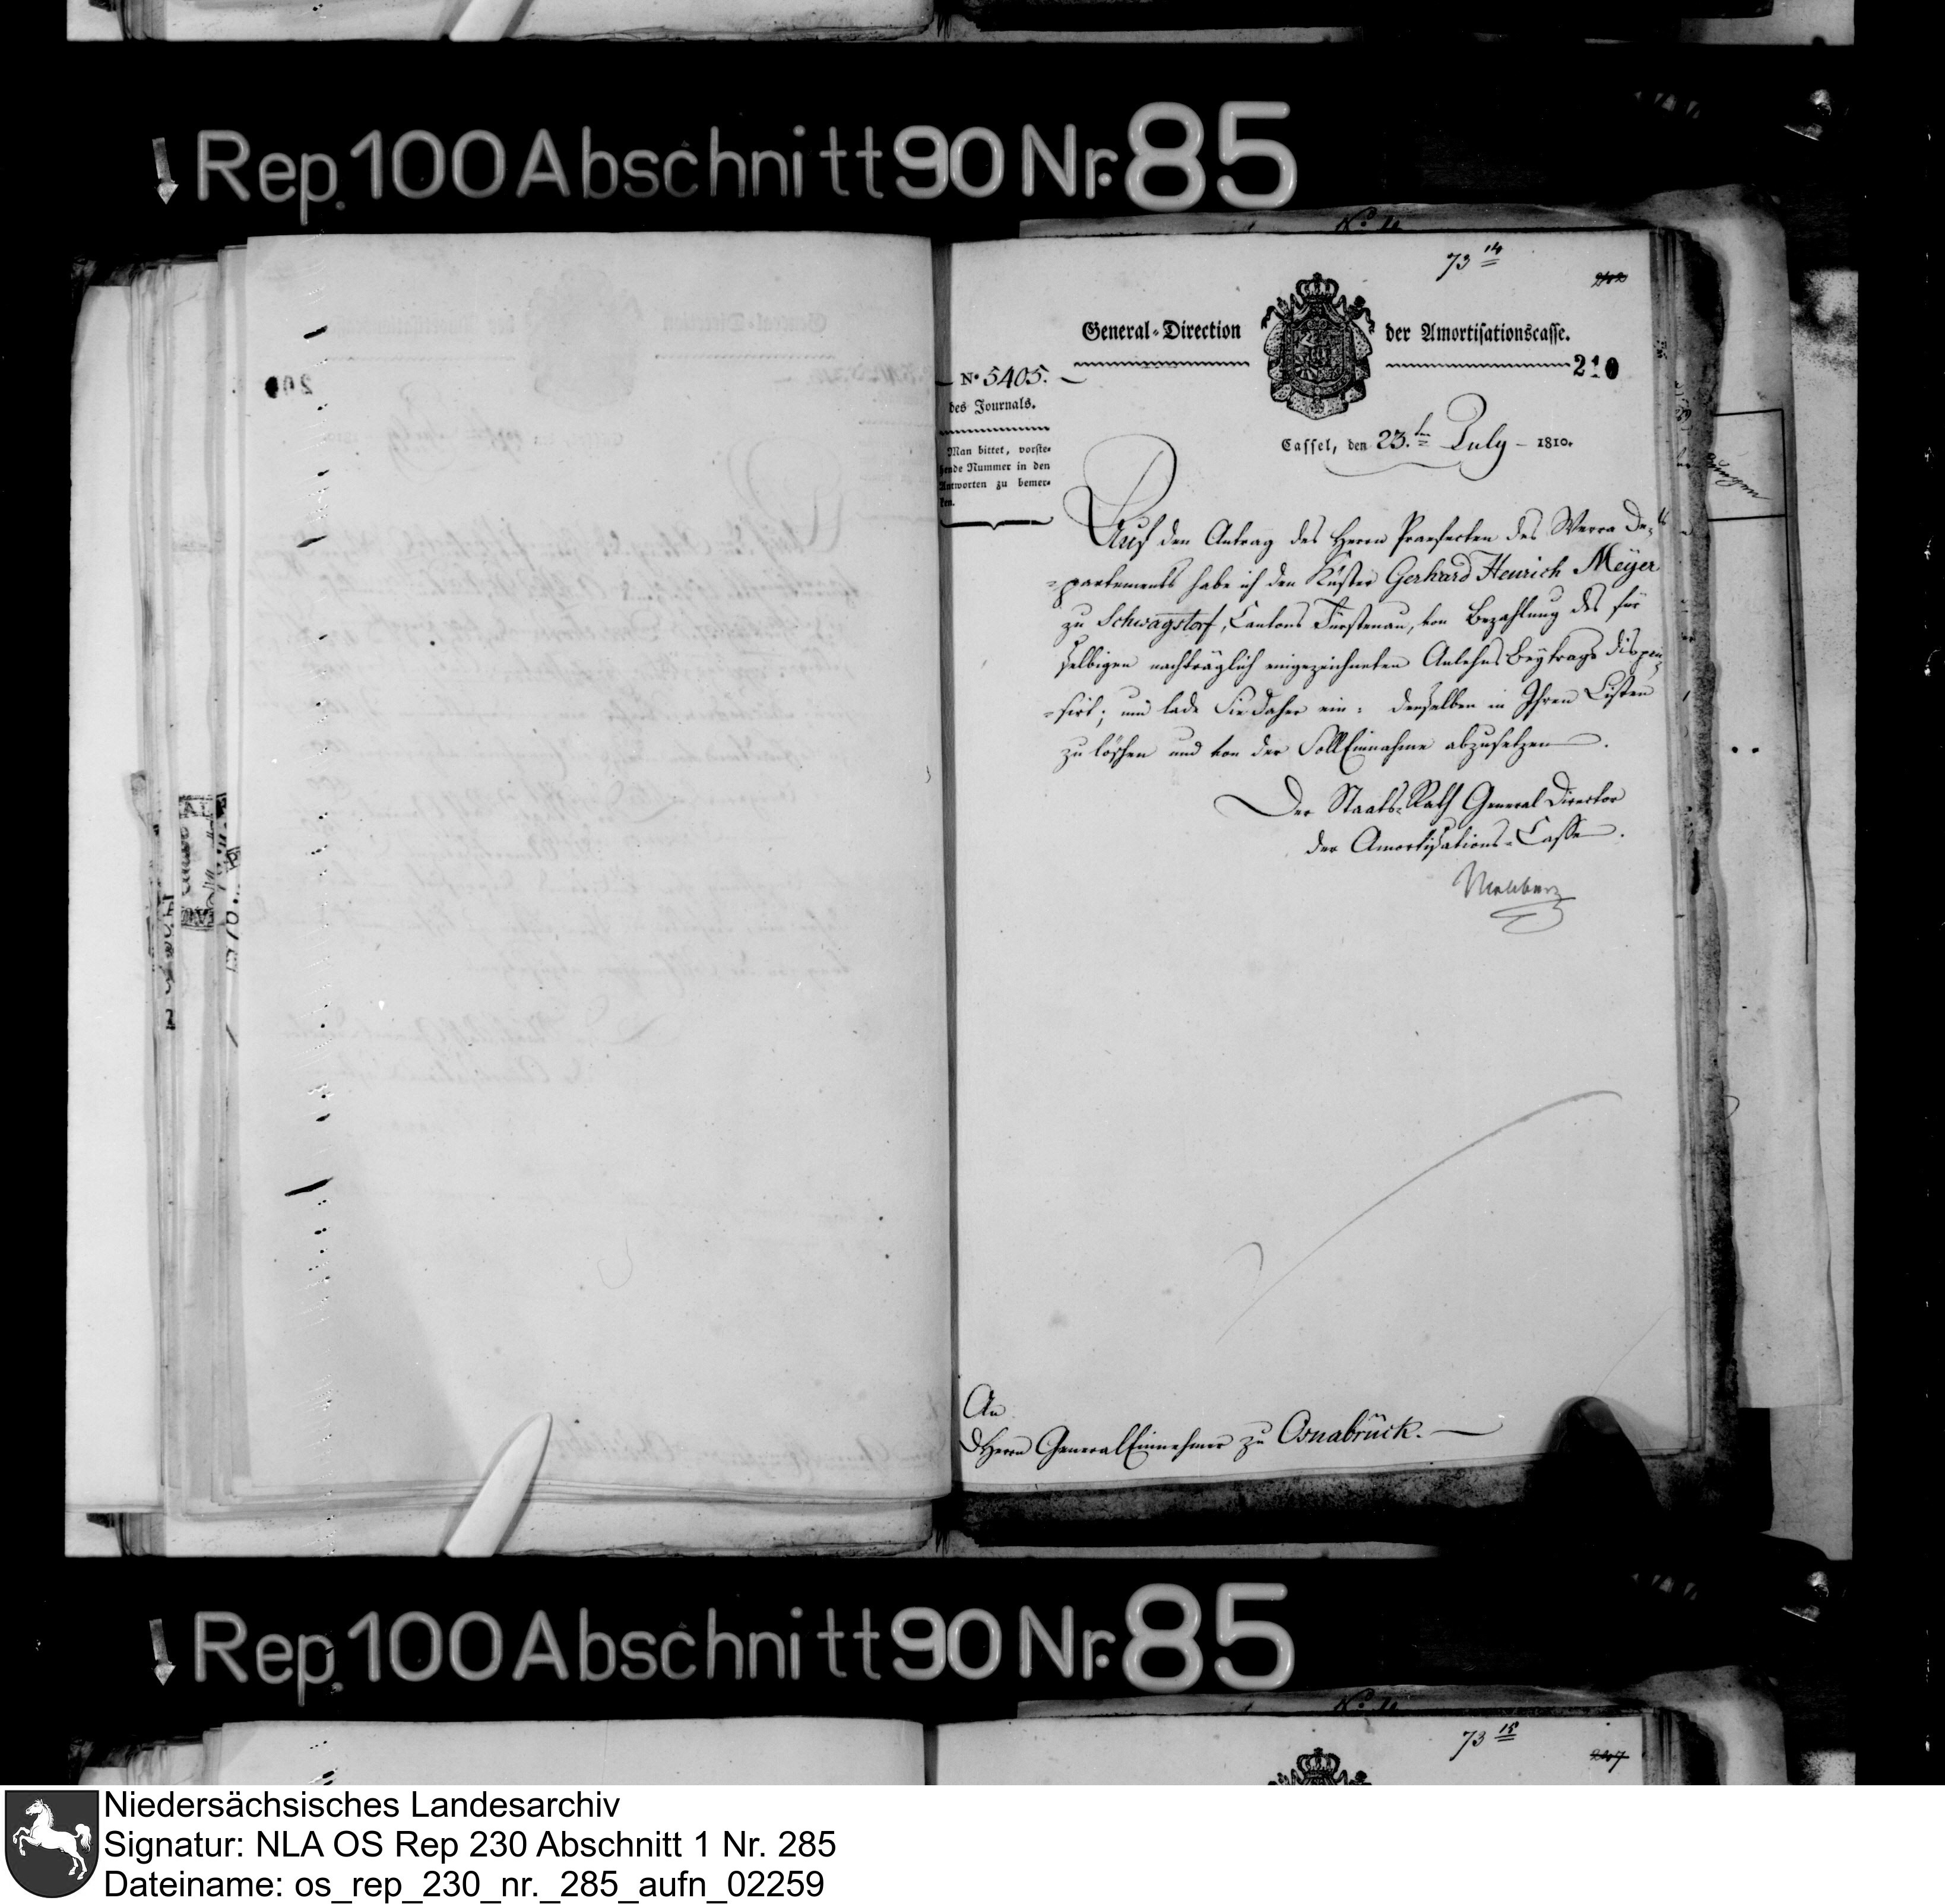 Rep. 100 Abschnitt 90 Nr. 85
73 14
General-Direction der Amortisationscasse.
210
No 5405.
des Journals.
Man bittet, vorste-
hende Nummer in den
Antworten zu bemer-
ken.
Cassel, den 23.ten July - 1810.
Auf den Antrag des Herrn Praefecten des Werra De-
-partements habe ich den Küster Gerhard Henrich Meÿer
zu Schwagstorf, Cantons Fürstenau, von Bezahlung des für
selbigen nachträglich eingezeichneten Anlehns Beytrags dispen-
-sirt; und lade Sie daher ein: denselben in Ihren Listen
zu löschen und von der Soll Einnahme abzusetzen.
Der Staats-Rath General Director
der Amortisations-Casse.
Malsburg
An
d Herrn General Einnehmer zu Osnabrück.
Rep. 100 Abschnitt 90 Nr. 85
73 15
Niedersächsisches Landesarchiv
Signatur: NLA OS Rep 230 Abschnitt 1 Nr. 285
Dateiname: os_rep_230_nr._285_aufn_02259